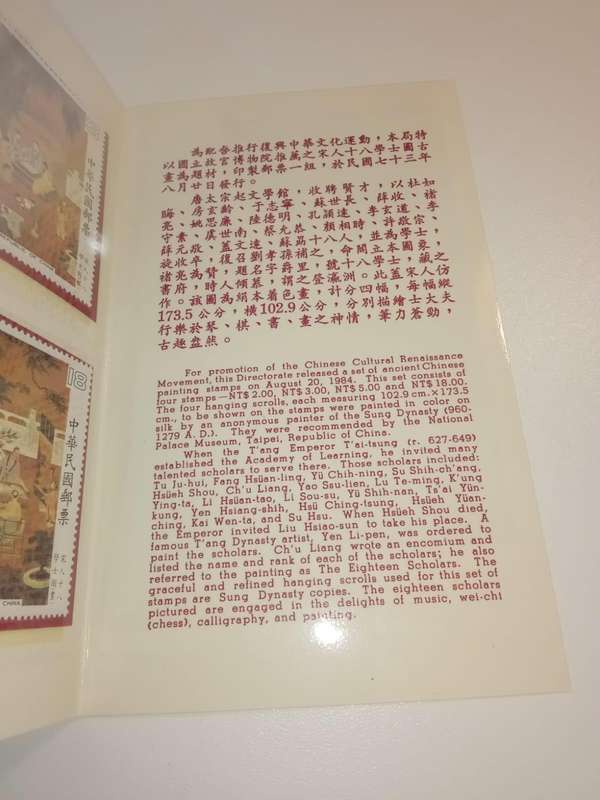 中華民國郵票
18
中華民國郵票
宋人十八
學士圖畫
CHINA
為配合推行復興中華文化運動，本局特
以國立故宮博物院推薦之宋人十八學士圖古
畫為題材，印製郵票一組，於民國七十三年
八月廿日發行。
唐太宗起文學館，收聘賢才，以杜如
晦、房玄齡、于志寧、蘇世長、薛收、褚
亮、姚思廉、陸德明、孔穎達、李玄道、李
守素、虞世南、蔡允恭、顏相時、許敬宗、
薛元敬、蓋文達、蘇勗十八人，並為學士，
旋收卒，復召劉孝孫補之，命閻立本圖象，
褚亮為贊，題名字爵里，號十八學士，藏之
書府，時人傾慕，謂之登瀛洲。此蓋宋人仿
作。該圖為絹本着色畫，計分四幅，每幅縱
173.5公分，橫102.9公分，分別描繪士大夫
行樂於琴、棋、書、畫之神情，筆力蒼勁，
古趣盎然。
For promotion of the Chinese Cultural Renaissance
Movement, this Directorate released a set of ancient Chinese
painting stamps on August 20, 1984. This set consists of
four stamps—NT$ 2.00, NT$ 3.00, NT$ 5.00 and NT$ 18.00.
The four hanging scrolls, each measuring 102.9 cm.×173.5
cm., to be shown on the stamps were painted in color on
silk by an anonymous painter of the Sung Dynasty (960-
1279 A. D.). They were recommended by the National
Palace Museum, Taipei, Republic of China.
When the T'ang Emperor T'ai-tsung (r. 627-649)
established the Academy of Learning, he invited many
talented scholars to serve there. Those scholars included:
Tu Ju-hui, Fang Hsüan-ling, Yü Chih-ning, Su Shih-ch'ang,
Hsüeh Shou, Ch'u Liang, Yao Ssu-lien, Lu Te-ming, K'ung
Ying-ta, Li Hsüan-tao, Li Sou-su, Yü Shih-nan, Ts'ai Yün-
kung, Yen Hsiang-shih, Hsü Ching-tsung, Hsüeh Yüan-
ching, Kai Wen-ta, and Su Hsu. When Hsüeh Shou died,
the Emperor invited Liu Hsiao-sun to take his place. A
famous T'ang Dynasty artist, Yen Li-pen, was ordered to
paint the scholars. Ch'u Liang wrote an encomium and
listed the name and rank of each of the scholars; he also
referred to the painting as The Eighteen Scholars. The
graceful and refined hanging scrolls used for this set of
stamps are Sung Dynasty copies. The eighteen scholars
pictured are engaged in the delights of music, wei-chi
(chess), calligraphy, and painting.